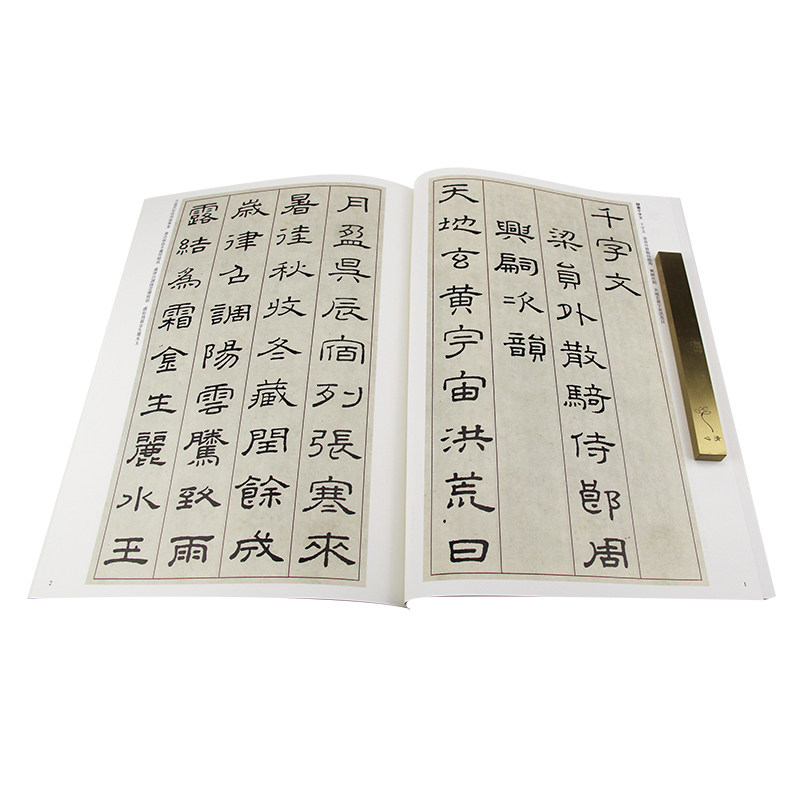 千字文
梁員外散騎侍郎周
興嗣次韻
天地玄黃宇宙洪荒日
1
月盈昃辰宿列張寒來
暑往秋收冬藏閏餘成
歲律呂調陽雲騰致雨
露結為霜金生麗水玉
2